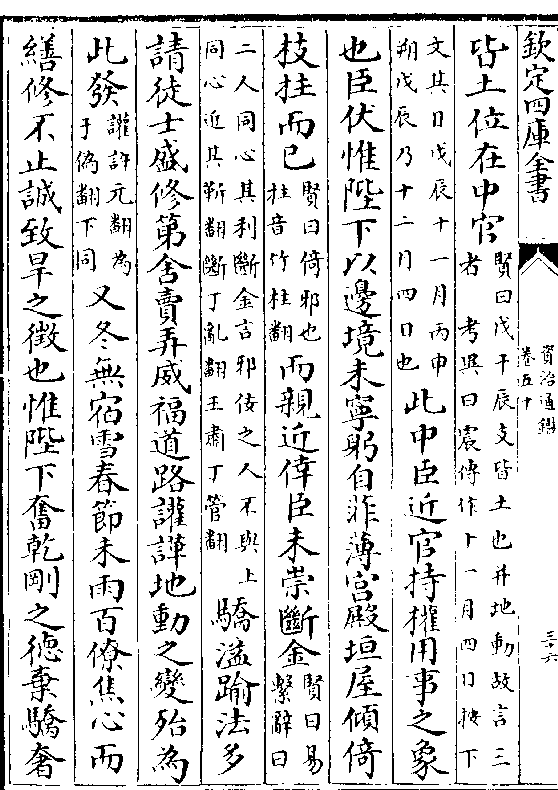 欽定四庫全書
資治通鑑
卷五十
三十六
皆土位在中官
賢曰戊干辰支皆土也并地動故言三
者 考異曰震傳作十一月四日按下
文其日戊辰十一月丙申
朔戊辰乃十二月四日也
此中臣近官持權用事之象
也臣伏惟陛下以邊境未寧躬自菲薄宮殿垣屋傾倚
枝拄而已
賢曰倚邪也
拄音竹柱翻
而親近倖臣未崇斷金
賢曰易
繫辭曰
二人同心其利斷金言邪佞之人不與上
同心近其靳翻斷丁亂翻王肅丁管翻
驕溢踰法多
請徒士盛修第舍賣弄威福道路讙譁地動之變殆為
此發
讙許元翻為
于偽翻下同
又冬無宿雪春節未雨百僚焦心而
繕修不止誠致旱之徵也惟陛下奮乾剛之德棄驕奢